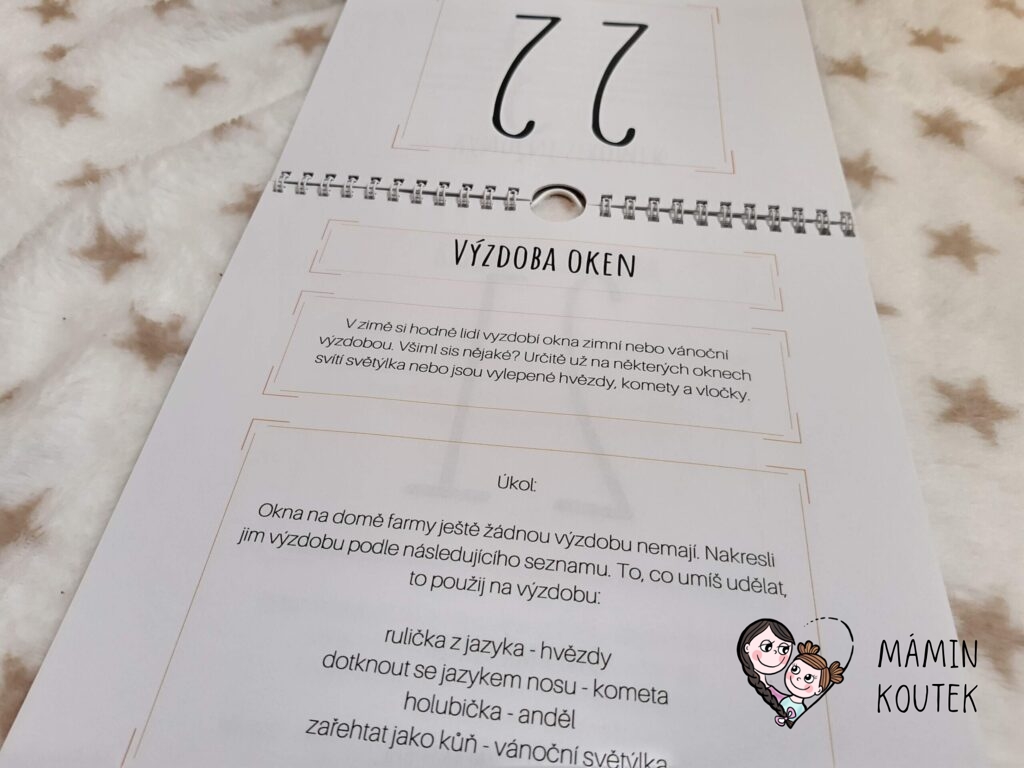 22
VÝZDOBA OKEN
V zimě si hodně lidí vyzdobí okna zimní nebo vánoční
výzdobou. Všiml sis nějaké? Určitě už na některých oknech
svítí světýlka nebo jsou vylepené hvězdy, komety a vločky.
Úkol:
Okna na domě farmy ještě žádnou výzdobu nemají. Nakresli
jim výzdobu podle následujícího seznamu. To, co umíš udělat,
to použij na výzdobu:
rulička z jazyka - hvězdy
dotknout se jazykem nosu - kometa
holubička - anděl
zařehtat jako kůň - vánoční světýlka
MÁMIN
KOUTEK